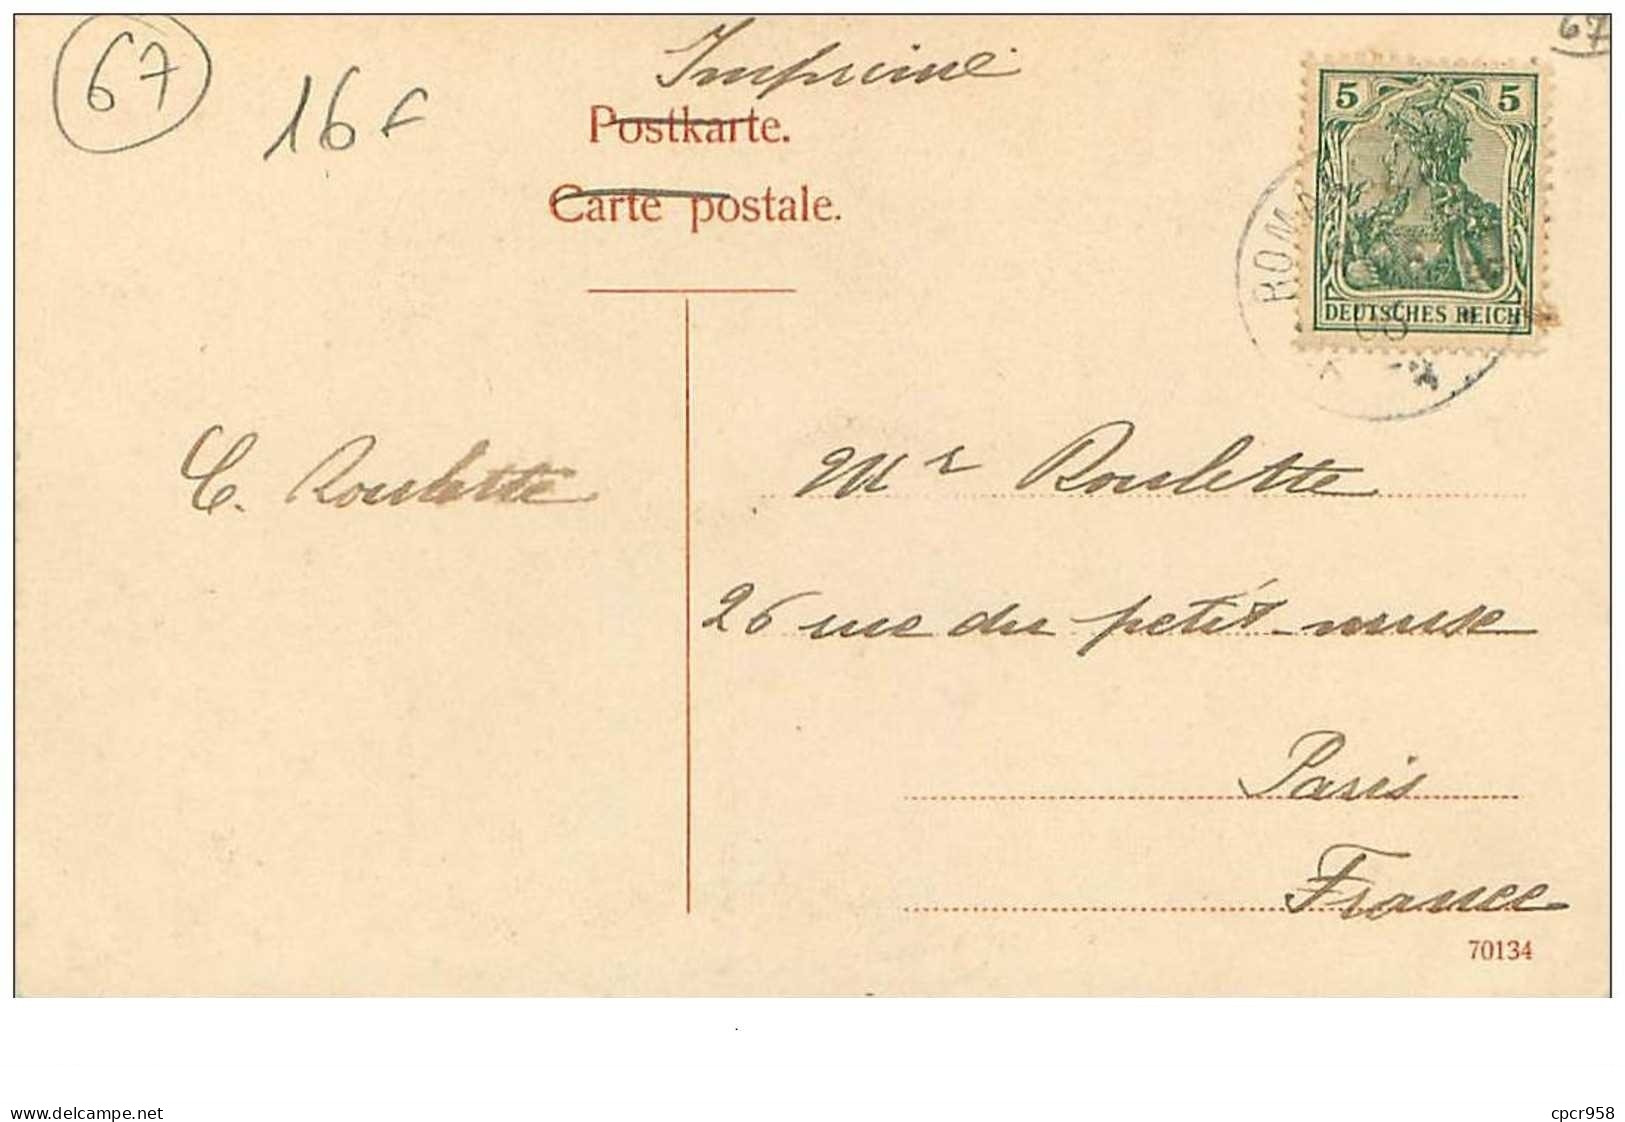 67
67
16 F
Imprimé
Postkarte.
Carte postale.
5 5
DEUTSCHES REICH
ROM
C. Roulette
Mr Roulette
26 rue du petit muse
Paris
France
70134
www.delcampe.net
cpcr958